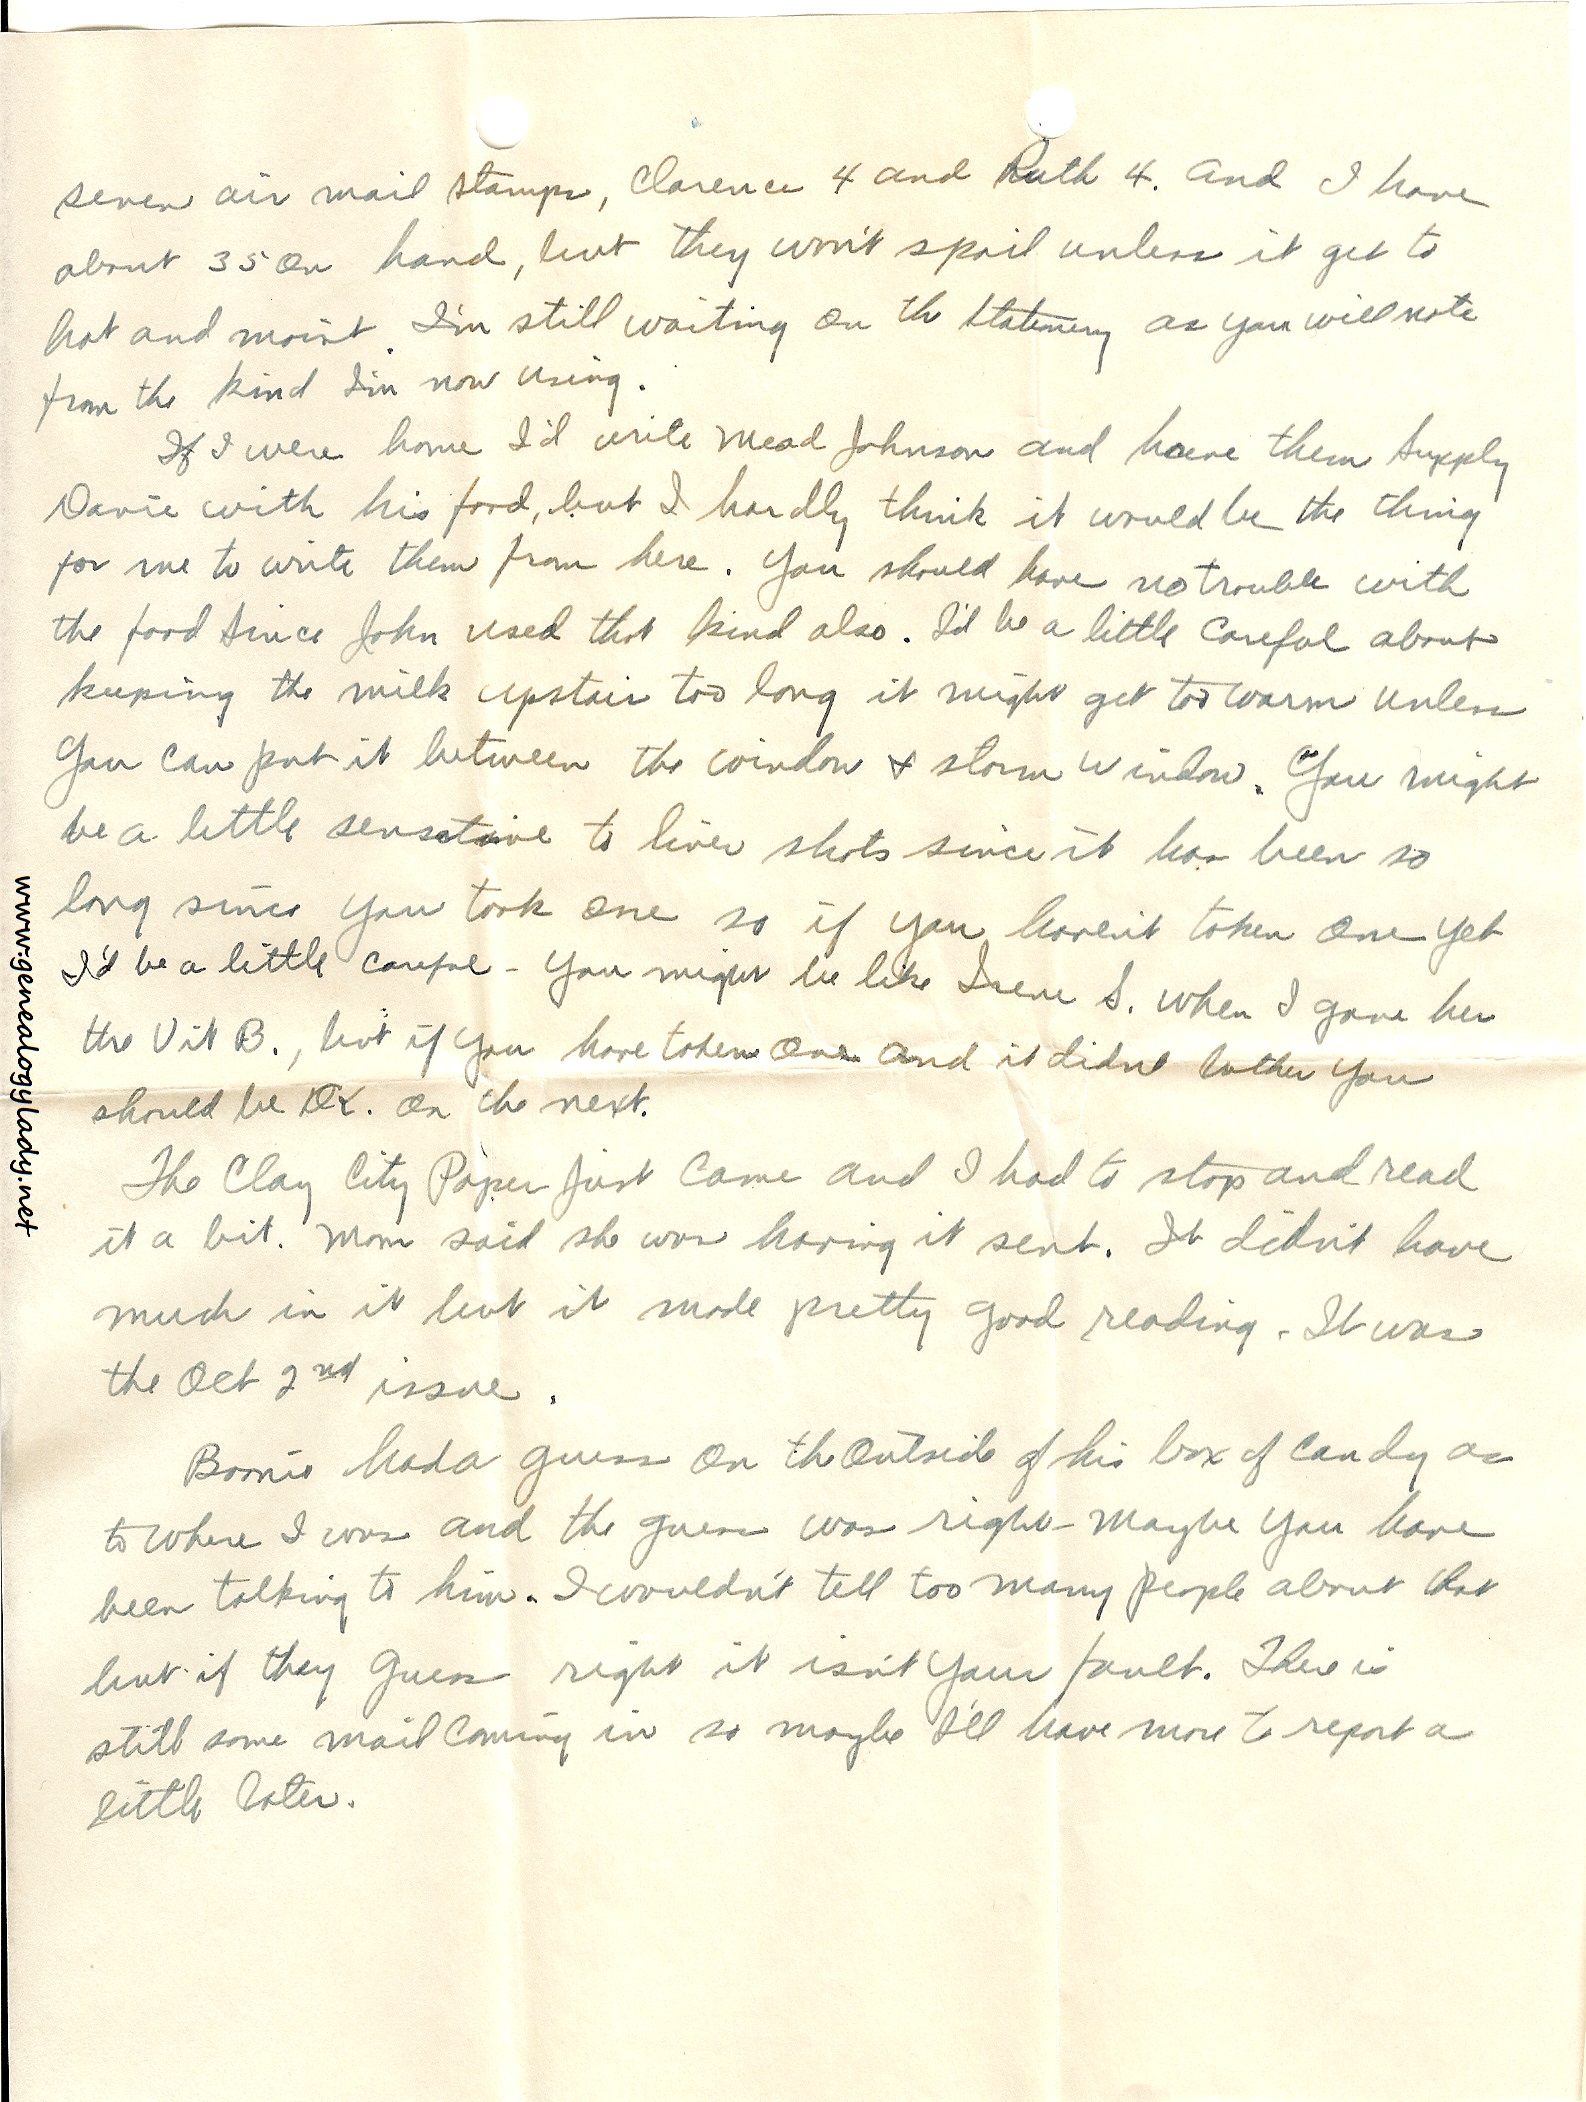 seven air mail stamps, Clarence 4 and Ruth 4. And I have
about 35 on hand, but they won't spoil unless it get to
hot and moist. I'm still waiting on the stationery as you will note
from the kind I'm now using.
If I were home I'd write Mead Johnson and have them supply
Davie with his food, but I hardly think it would be the thing
for me to write them from here. You should have no trouble with
the food since John used that kind also. I'd be a little careful about
keeping the milk upstair too long it might get too warm unless
you can put it between the window & storm window. You might
be a little sensative to liver shots since it has been so
long since you took one so if you haven't taken one yet
I'd be a little careful - you might be like Irene S. when I gave her
the Vit B., but if you have taken one and it didnt bother you
should be OK. on the next.
The Clay City Paper just came and I had to stop and read
it a bit. Mom said she was having it sent. It didn't have
much in it but it made pretty good reading. It was
the Oct 2nd issue.
had a guess on the outside of his box of candy as
to where I was and the guess was right - Maybe you have
been talking to him. I wouldn't tell too many people about that
but if they guess right it isn't your fault. There is
still some mail coming in so maybe I'll have more to report a
little later.
www.genealogylady.net